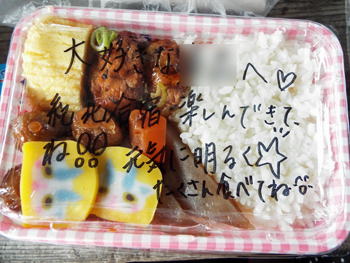 大好きな へ♡
合宿楽しんできて
ね!!元気に明るく☆
たくさん食べてね